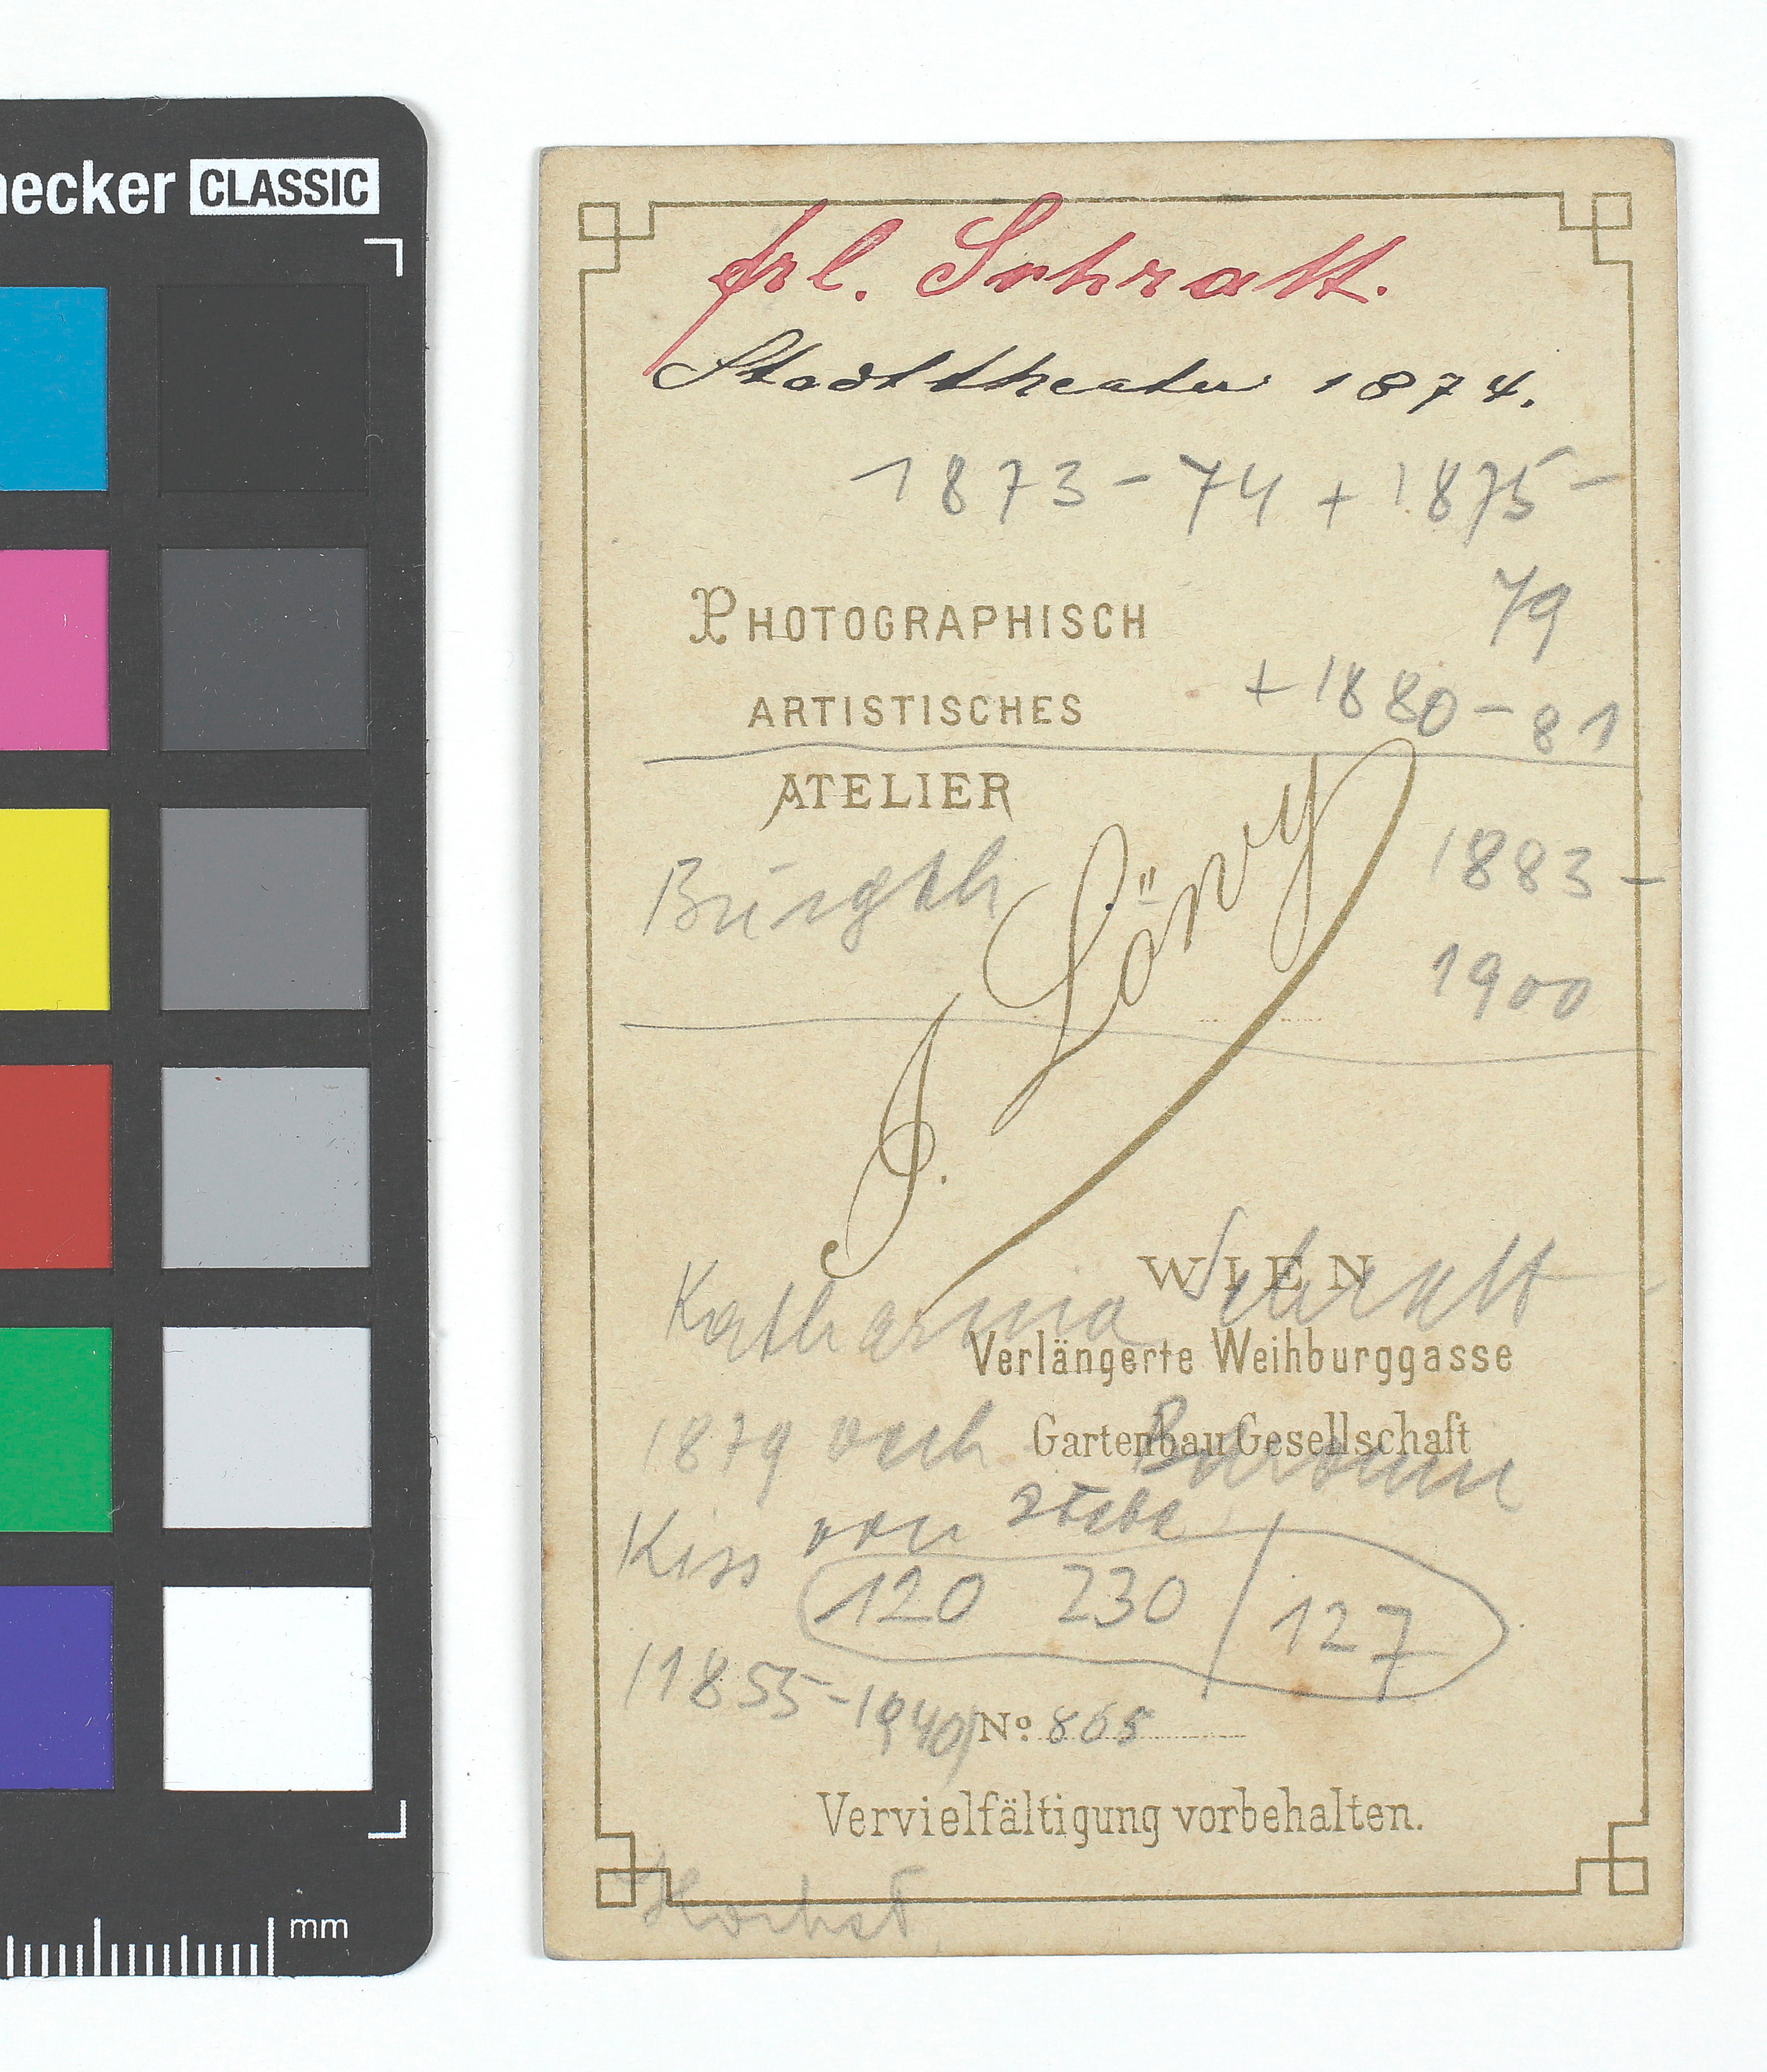 hecker CLASSIC
frl. Schratt.
Stadttheater 1874.
1873-74 + 1875-
79
PHOTOGRAPHISCH
+ 1880-81
ARTISTISCHES
ATELIER
Burgth
1883-
1900
J. Löwy
WIEN
Katharina Schratt
Verlängerte Weihburggasse
GartenBauGesellschaft
1879 verh Baronin
Kiss von Ittebe
120 230 / 127
(1855-1940)
No. 865
Vervielfältigung vorbehalten.
mm